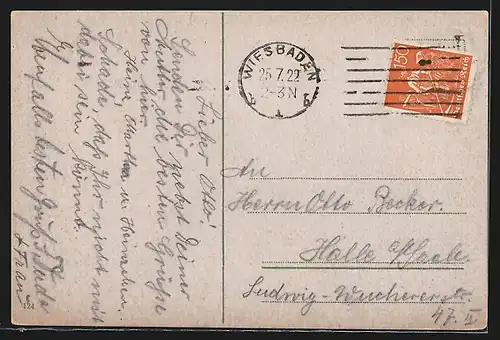 Lieber Otto!
Senden Dir nebst Deiner
Mutter die besten Grüße
von hier
Heini, Martha u. Heinzchen.
Schade, daß Ihr nicht mit
dabei sein könnt.
Ebenfalls besten Gruß
+ Frau
WIESBADEN
25.7.22
2-3N
1
150
An
Herrn Otto Becker.
Halle a/Saale.
Ludwig-Wuchererstr.
47. II